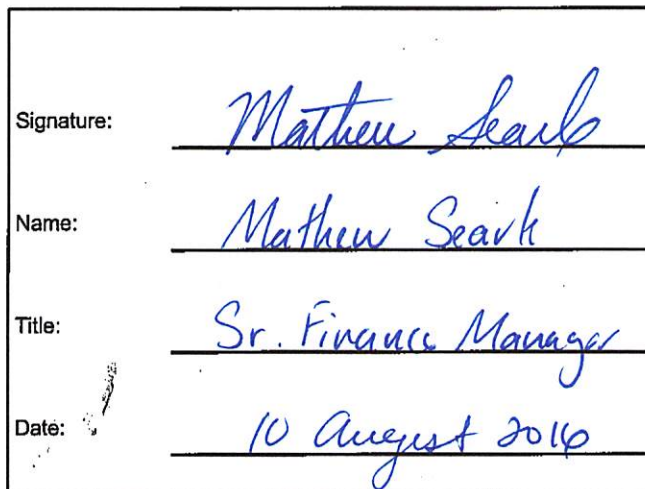 Signature: Mathew Searle
Name: Mathew Searle
Title: Sr. Finance Manager
Date: 10 August 2016